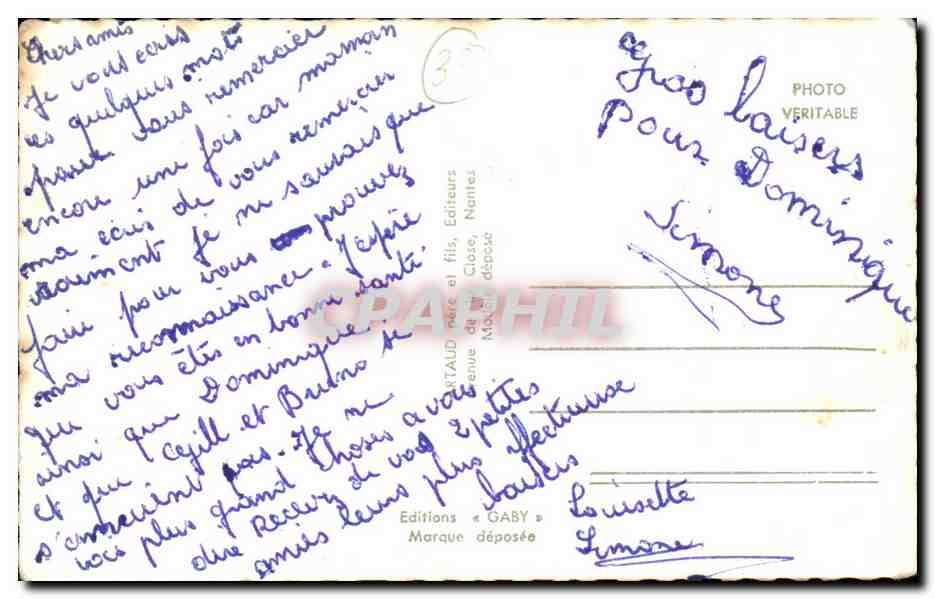 Chers amis
Je vous écris
ces quelques mots
pour vous remercier
encore une fois car maman
ma écris de vous remercier
vraiment je ne saurais que
faire pour vous prouvez
ma reconnaissance. J'espère
que vous êtes en bonne santé
ainsi que Dominique
et que Cejill et Bruno se
s'ennuient pas. Je ne
vois plus grand choses a vous
dire Recevez de vos 2 petites
amies leurs plus affectueuse
baisers
Louisette
Simone
35
Gros baisers
pour Dominique
Simone
PHOTO
VERITABLE
ARTAUD père et fils, Editeurs
avenue de la Close, Nantes
Modèle déposé
CPAPHIL
Editions « GABY »
Marque déposée